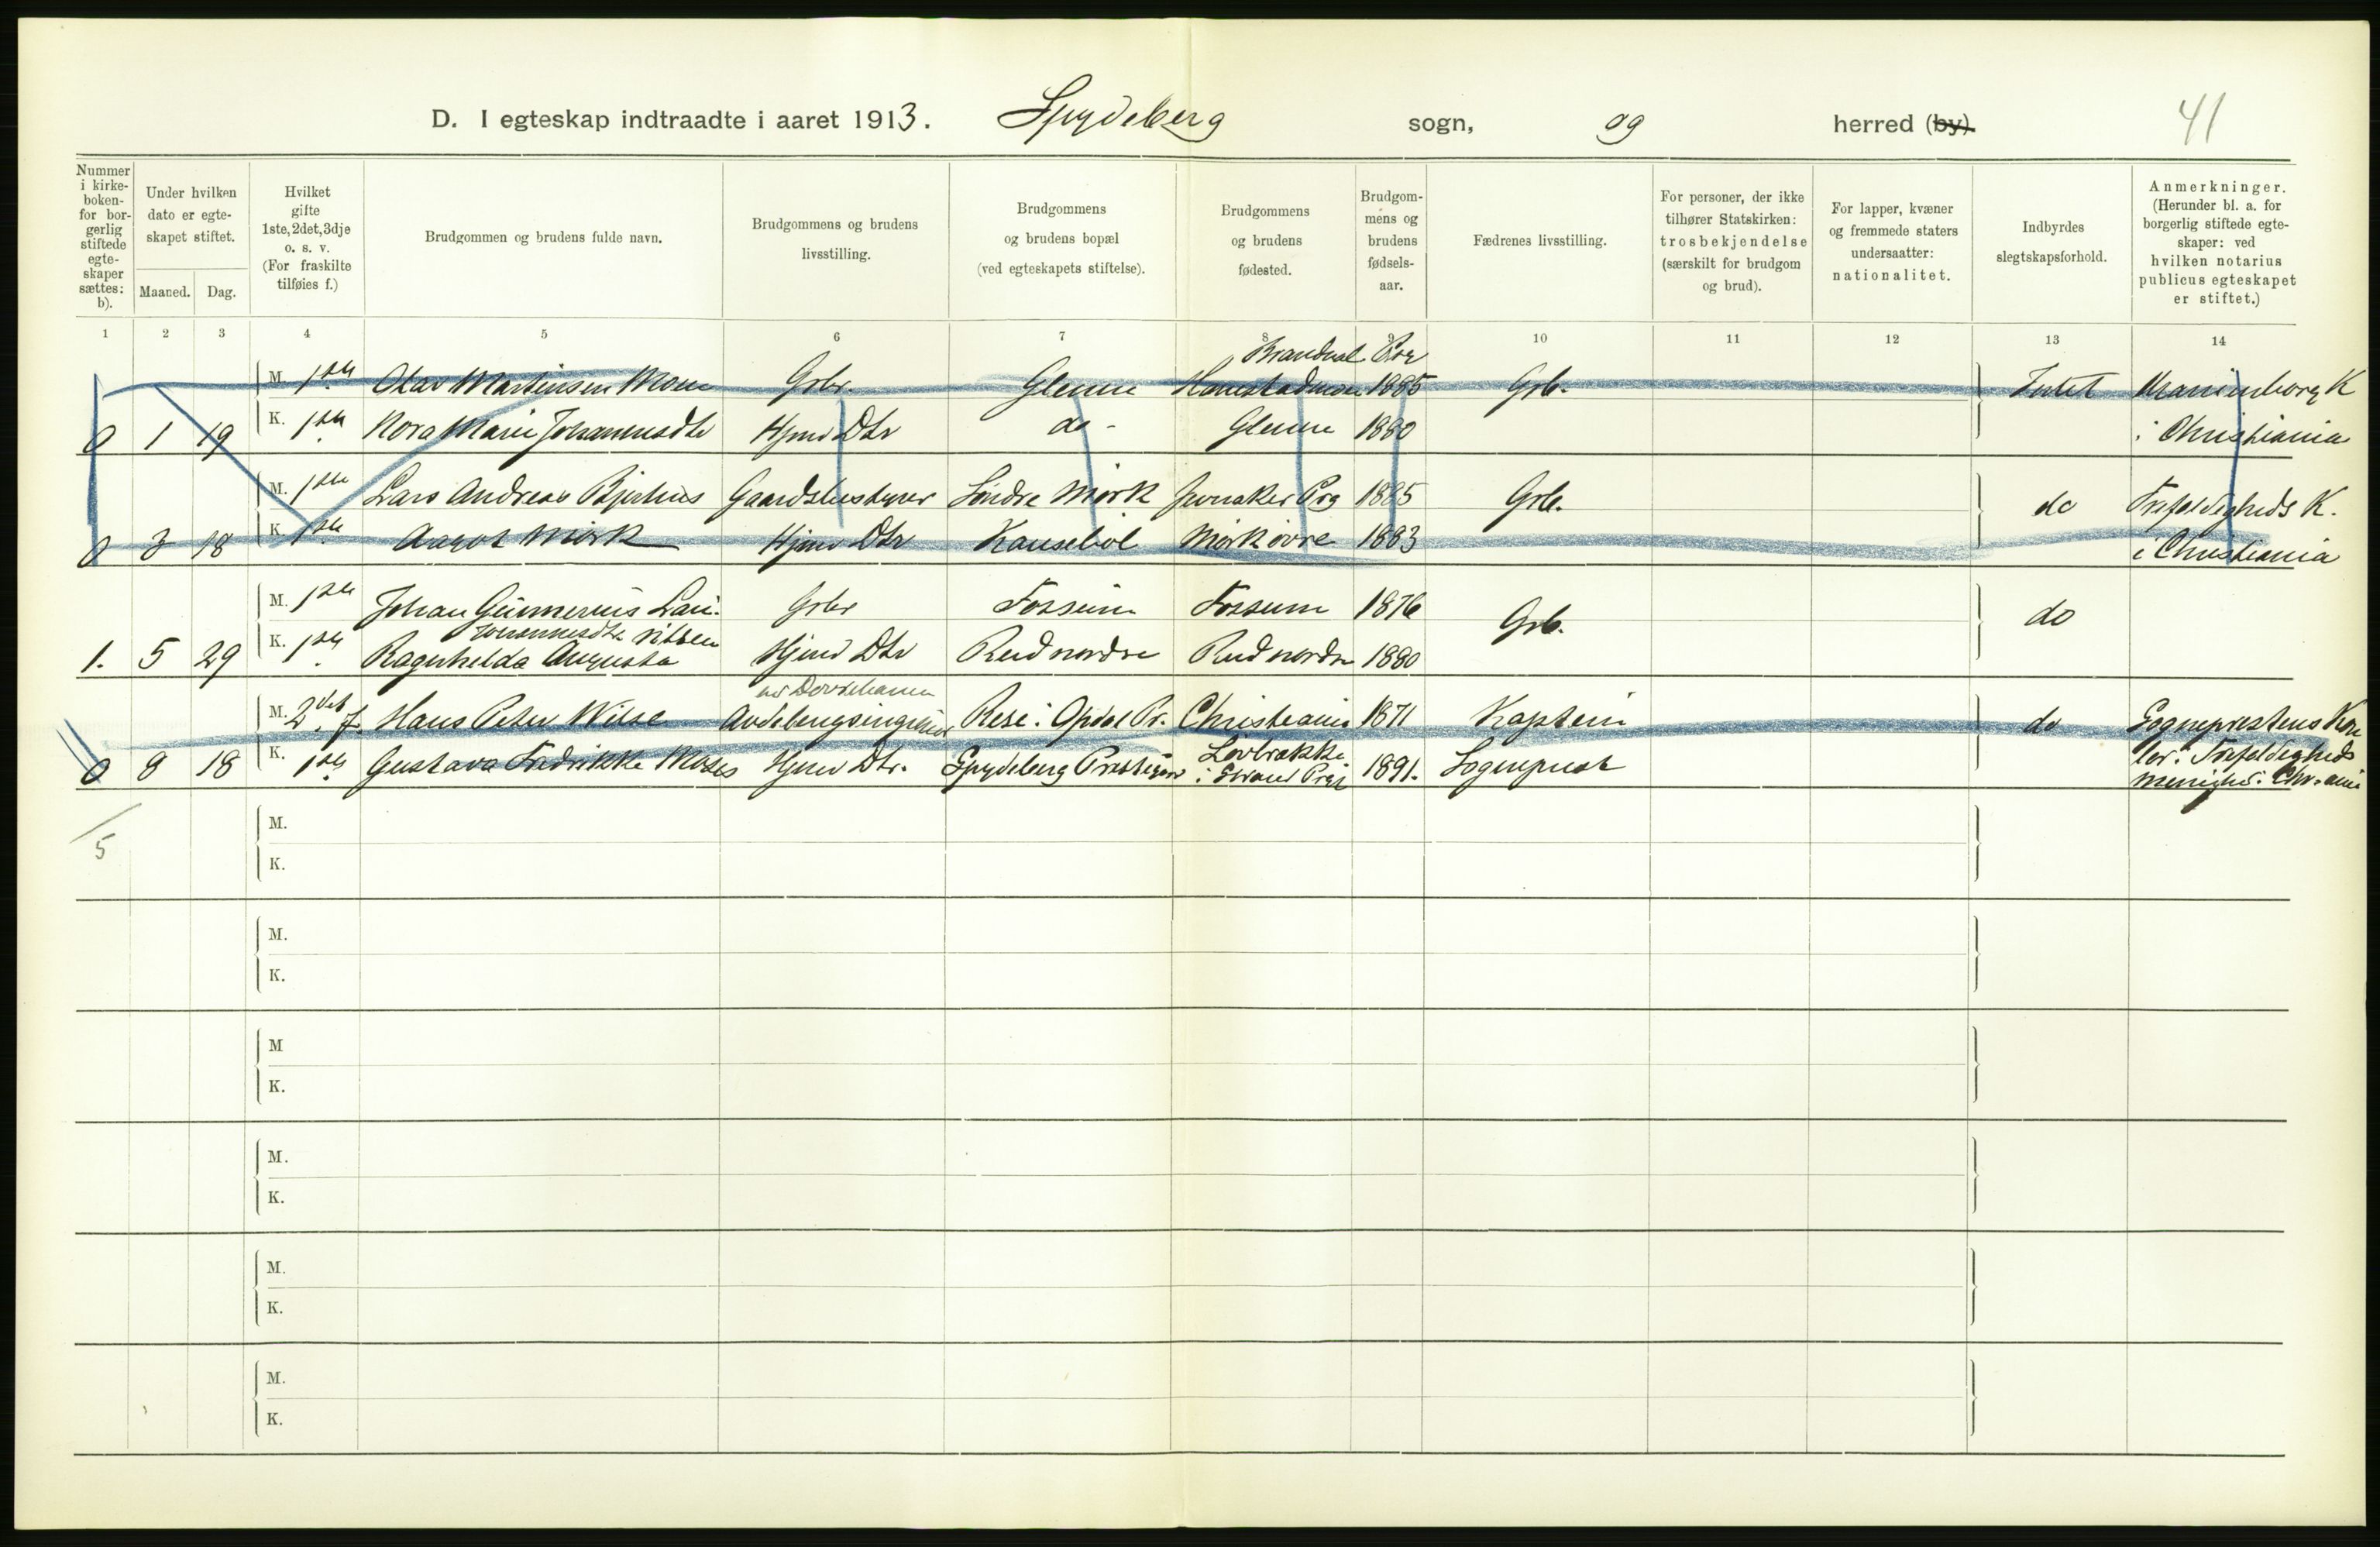 D. I egteskap indtraadte i aaret 1913. Spydeberg sogn, og herred (by). 41
Nummer i kirke-boken- for bor-gerlig stiftede egte-skaper sættes: b).
Under hvilken dato er egte-skapet stiftet.
Maaned. Dag.
Hvilket gifte 1ste, 2det, 3dje o. s. v. (For fraskilte tilføies f.)
Brudgommen og brudens fulde navn.
Brudgommens og brudens livsstilling.
Brudgommens og brudens bopæl (ved egteskapets stiftelse).
Brudgommens og brudens fødested.
Brudgom-mens og brudens fødsels-aar.
Fædrenes livsstilling.
For personer, der ikke tilhører Statskirken: trosbekjendelse (særskilt for brudgom og brud).
For lapper, kvæner og fremmede staters undersaatter: nationalitet.
Indbyrdes slegtskapsforhold.
Anmerkninger. (Herunder bl. a. for borgerlig stiftede egte-skaper: ved hvilken notarius publicus egteskapet er stiftet.)
1 2 3 4 5 6 7 8 9 10 11 12 13 14
Brandval Prg
M. 1ste Olav Martinsen Moen Grbr. Glenne 1885 Grb. Intet Uranienborg K
0 1 19 K. 1ste Nora Marie Johannesdtr Hjmv Dtr do - Glenne 1880 i Christiania
M. 1ste Lars Andreas Bjerhus Gaardsbestyrer Søndre Mørk Jevnaker Prg 1885 Grb. do Trefoldigheds K.
0 3 18 K. 1ste Aagot Mørk Hjmv Dtr Kausebøl Mørk øvre 1883 i Christiania
M. 1ste Johan Gunnerius Grbr Fossum Fossum 1876 Grb. do
Johannesdtr
1. 5 29 K. 1ste Ragnhilda Augusta Hjmv Dtr Rud nordre Rud nordre 1880
ved Dovrebanen
M. 2det f. Hans Peter Wille Avdelingsingeniør Rise i Opdal Pr. Christiania 1871 Kaptein do Sogneprestens Kon
0 8 18 K. 1ste Gustava Fredrikke Moses Hjmv Dtr. Spydeberg Prestegaard Løvbrække i Strand Prgj 1891. Sogneprest tor i Trefoldigheds
menighed i Chr.ania
5
M.
K.
M.
K.
M
K.
M.
K.
M.
K.
M.
K.